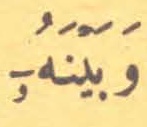 وَبَيْنَهُ